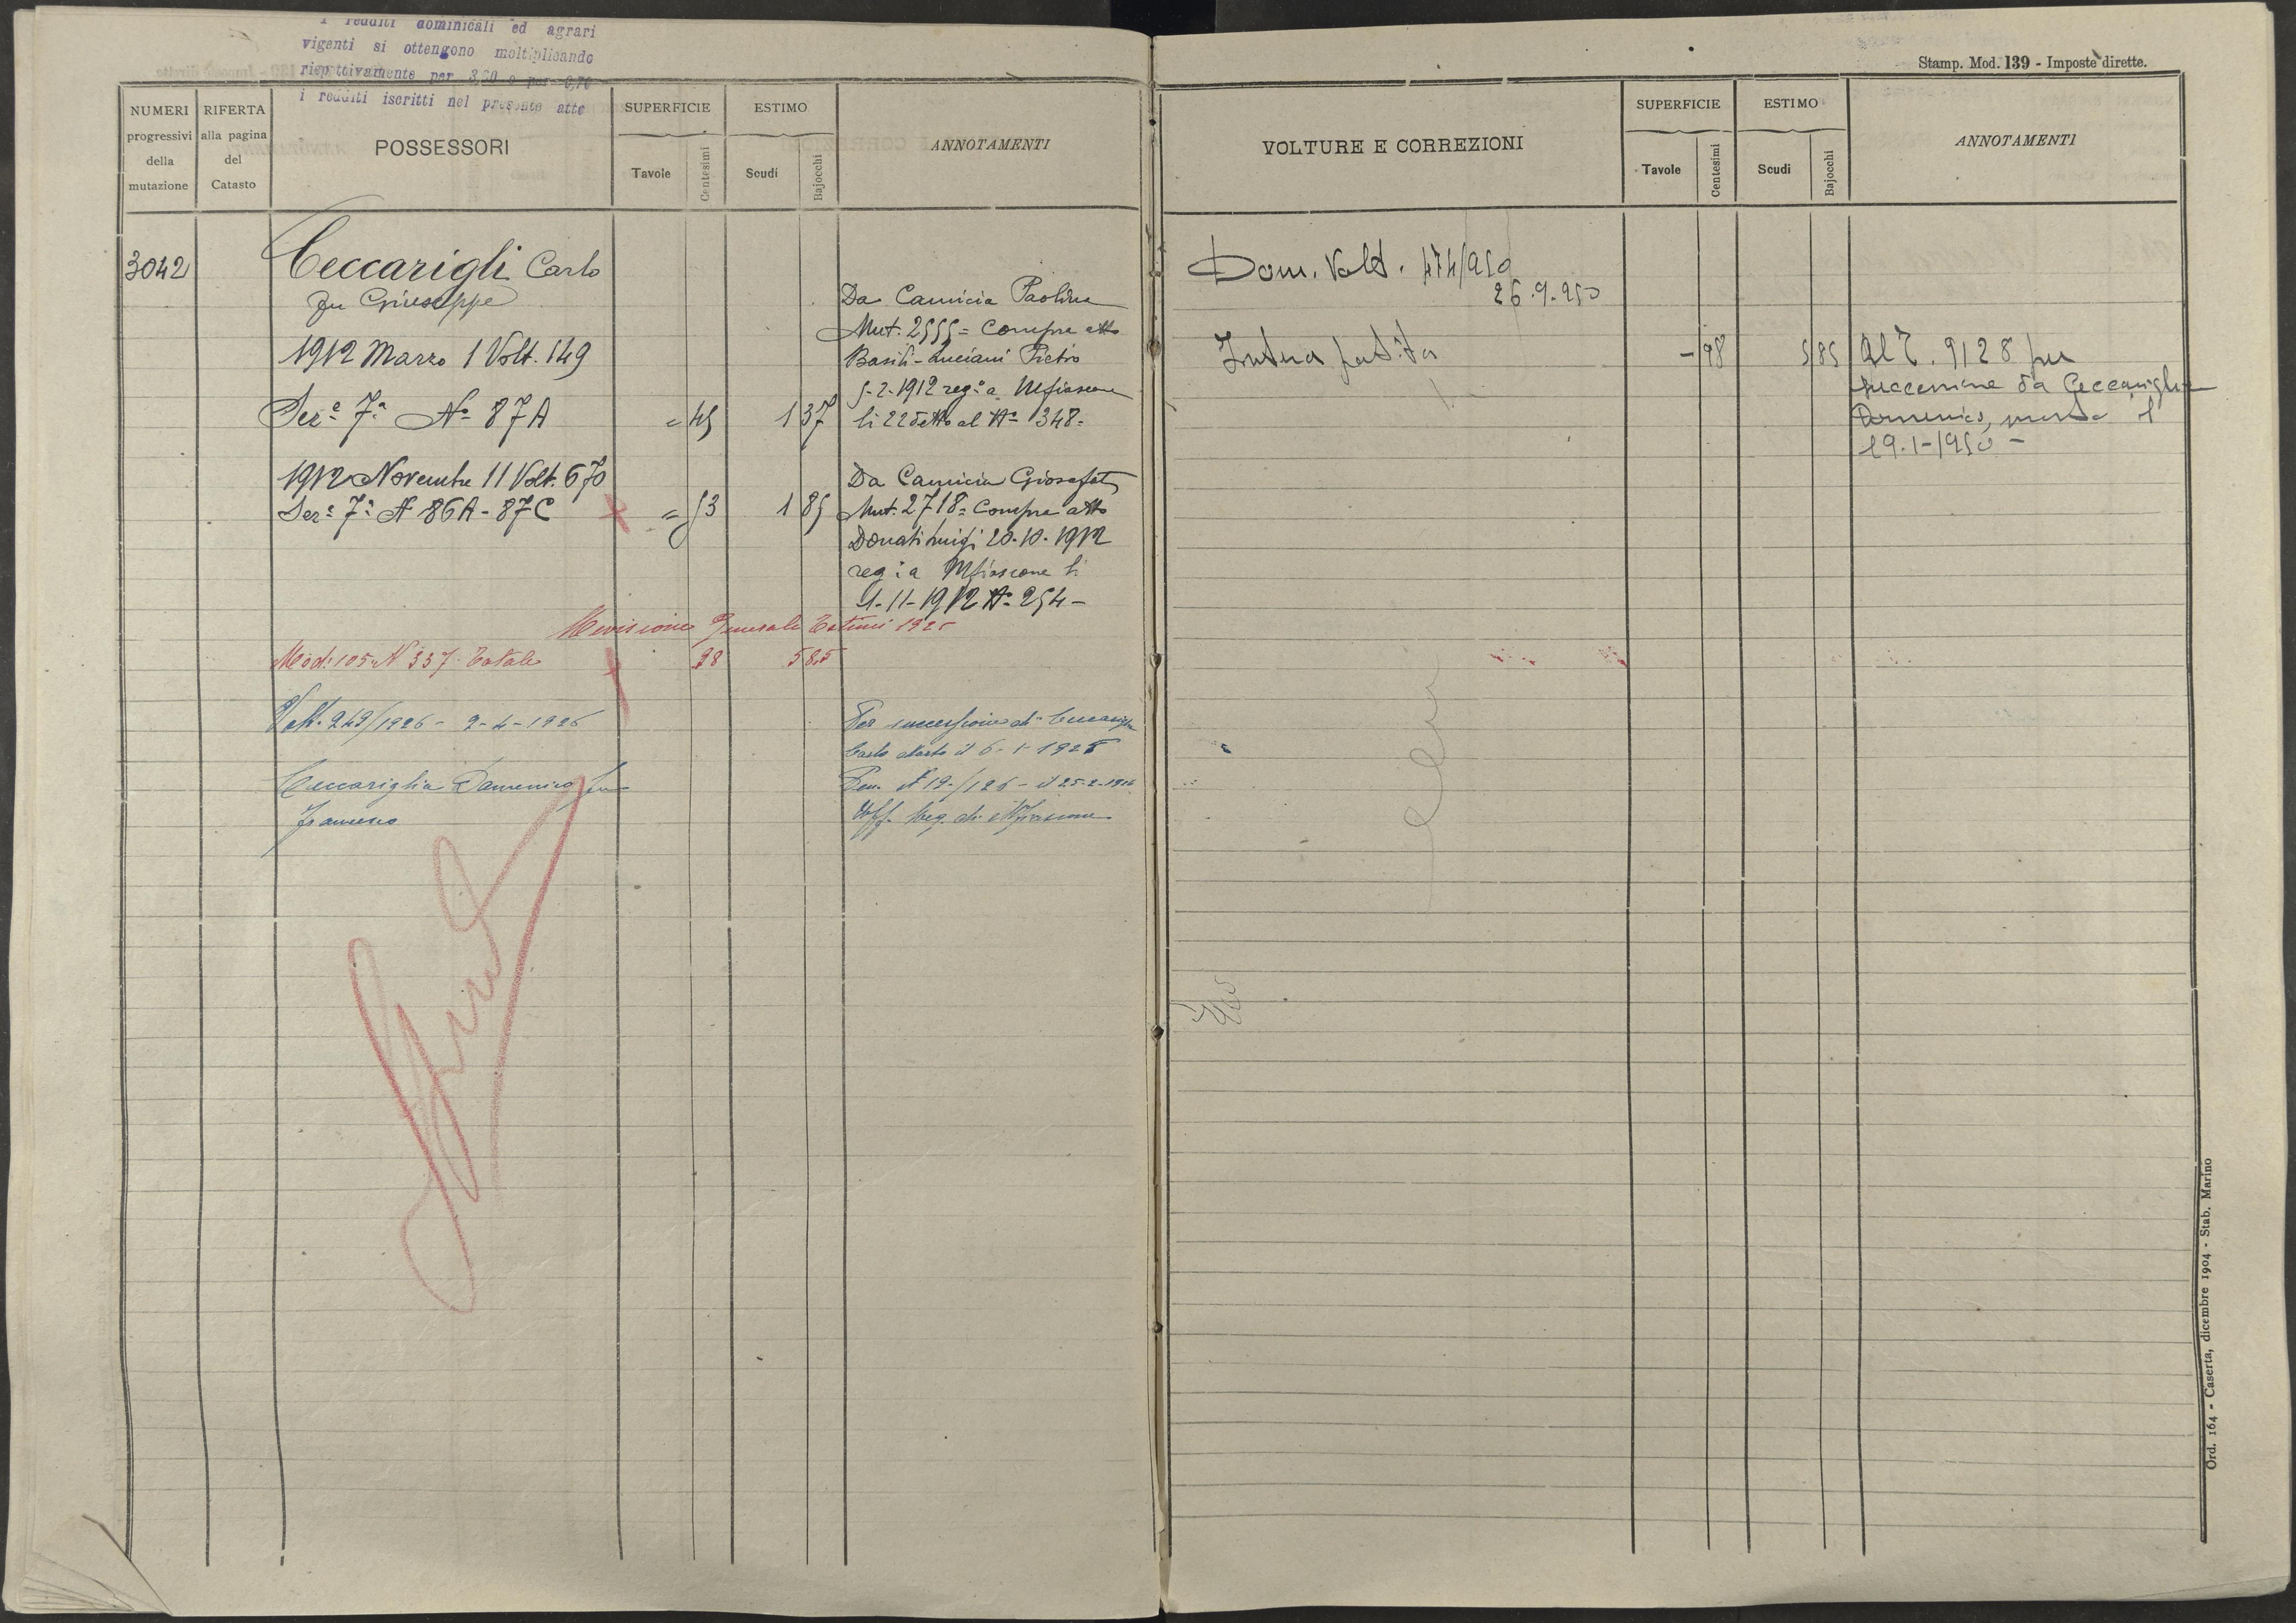 i redditi dominicali ed agrari
vigenti si ottengono moltiplicando
rispettivamente per 3,20 e per 0,70
i redditi iscritti nel presente atto
Stamp. Mod. 139 - Imposte dirette.
NUMERI progressivi della mutazione
RIFERTA alla pagina del Catasto
POSSESSORI
SUPERFICIE
Tavole
Centesimi
ESTIMO
Scudi
Bajocchi
ANNOTAMENTI
VOLTURE E CORREZIONI
SUPERFICIE
Tavole
Centesimi
ESTIMO
Scudi
Bajocchi
ANNOTAMENTI
3042
Ceccarigli Carlo
fu Giuseppe
1912 Marzo 1 Volt. 149
Sez.e 7a No 87A = 45 1 37
Da Camicia Paolina
Mut. 2555 = Compra atto
Basili-Luciani Pietro
5-2-1912 reg.o a Mfiascone
li 22 detto al No 348=
1912 Novembre 11 Volt. 670
Sez.e 7a N 86A - 87C = 53 1 85
Da Camicia Giosafat
Mut. 2718= Compra atto
Donati Luigi 20-10-1912
reg.o a Mfiascone li
1-11-1912 No 254-
Revisione Generale Estimi 1925
Mod. 105 N 337 Totale 98 5 85
Volt. 249/1926 - 9-4-1926
Ceccariglia Domenico fu
Francesco
Per successione di Ceccariglia
Carlo morto il 6-1-1926
Den. N 19/126 - il 25-2-1926
Uff. Reg. di Mfiascone
Dom. Volt. 474/950
26.9.950
Intera partita - 98 5 85
Al T. 9128 per
successione da Ceccariglia
Domenico, morto il
19-1-1950 -
Ord. 164 - Caserta, dicembre 1904 - Stab. Marino